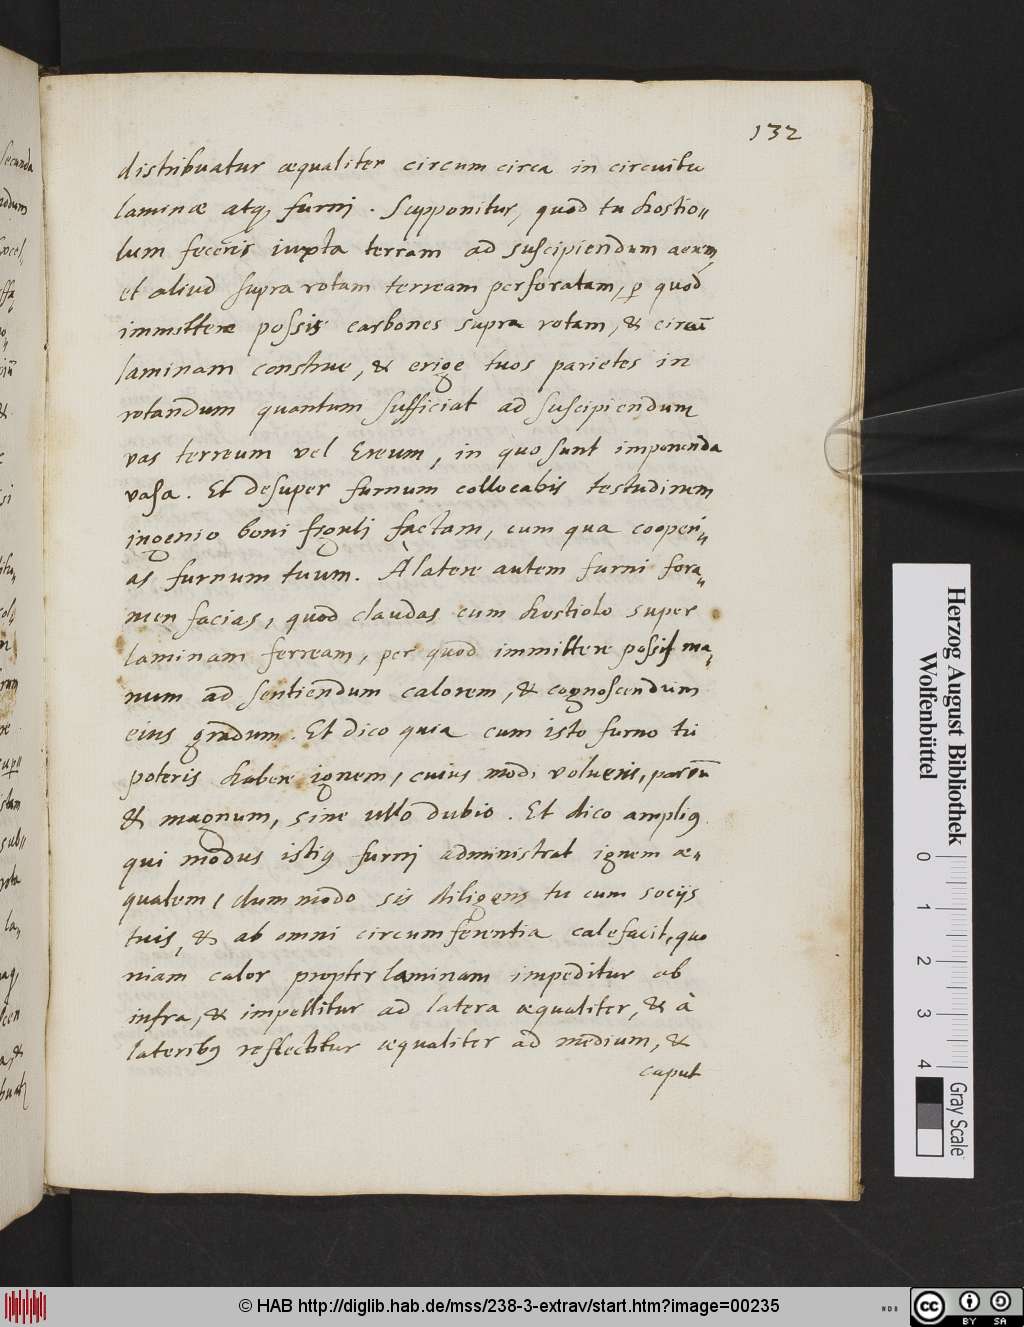 132
distribuatur æqualiter circum circa in circuitu
laminæ atq; furnj. Supponitur, quod tu hostio„
lum feceris iuxta terram ad suscipiendum aerem,
et aliud supra rotam terream perforatam, p quod
immittere possis carbones supra rotam, & circū
laminam construe, & erige tuos parietes in
rotandum quantum sufficiat ad suscipiendum
vas terreum vel Ereum, in quo sunt imponenda
vasa. Et desuper furnum collocabis testudinem
ingenio boni figuli factam, cum qua cooperi„
as furnum tuum. À latere autem furni fora„
men facias, quod claudas cum hostiolo super
laminam ferream, per quod immittere possis ma„
num ad sentiendum calorem, & cognoscendum
eius gradum. Et dico quia cum isto furno tu
poteris habere ignem, cuius modi volueris, paruū
& magnum, sine ullo dubio. Et dico ampliq
qui modus istiq furnj administrat ignem æ„
qualem, dum modo sis diligens tu cum socijs
tuis, & ab omni circumferentia calefacit, quo
niam calor propter laminam impeditur ab
infra, & impellitur ad latera æqualiter, & à
lateribq reflectitur æqualiter ad medium, &
caput
Herzog August Bibliothek
Wolfenbüttel
0 1 2 3 4
Gray Scale
© HAB http://diglib.hab.de/mss/238-3-extrav/start.htm?image=00235
cc BY SA